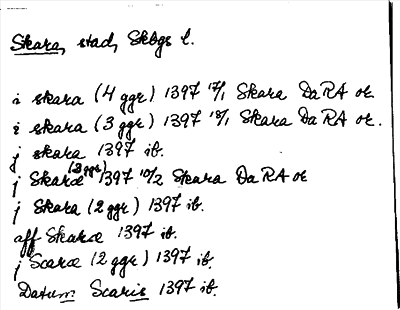 Skara, stad, Skbgs l.
i skara (4 ggr) 1397 17/1 Skara DaRA or.
i skara (3 ggr) 1397 18/1 Skara DaRA or.
j skara 1397 ib.
j Skaræ (3 ggr) 1397 10/2 Skara DaRA or
j Skara (2 ggr) 1397 ib.
aff Skaræ 1397 ib.
j Scaræ (2 ggr) 1397 ib.
Datum Scaris 1397 ib.